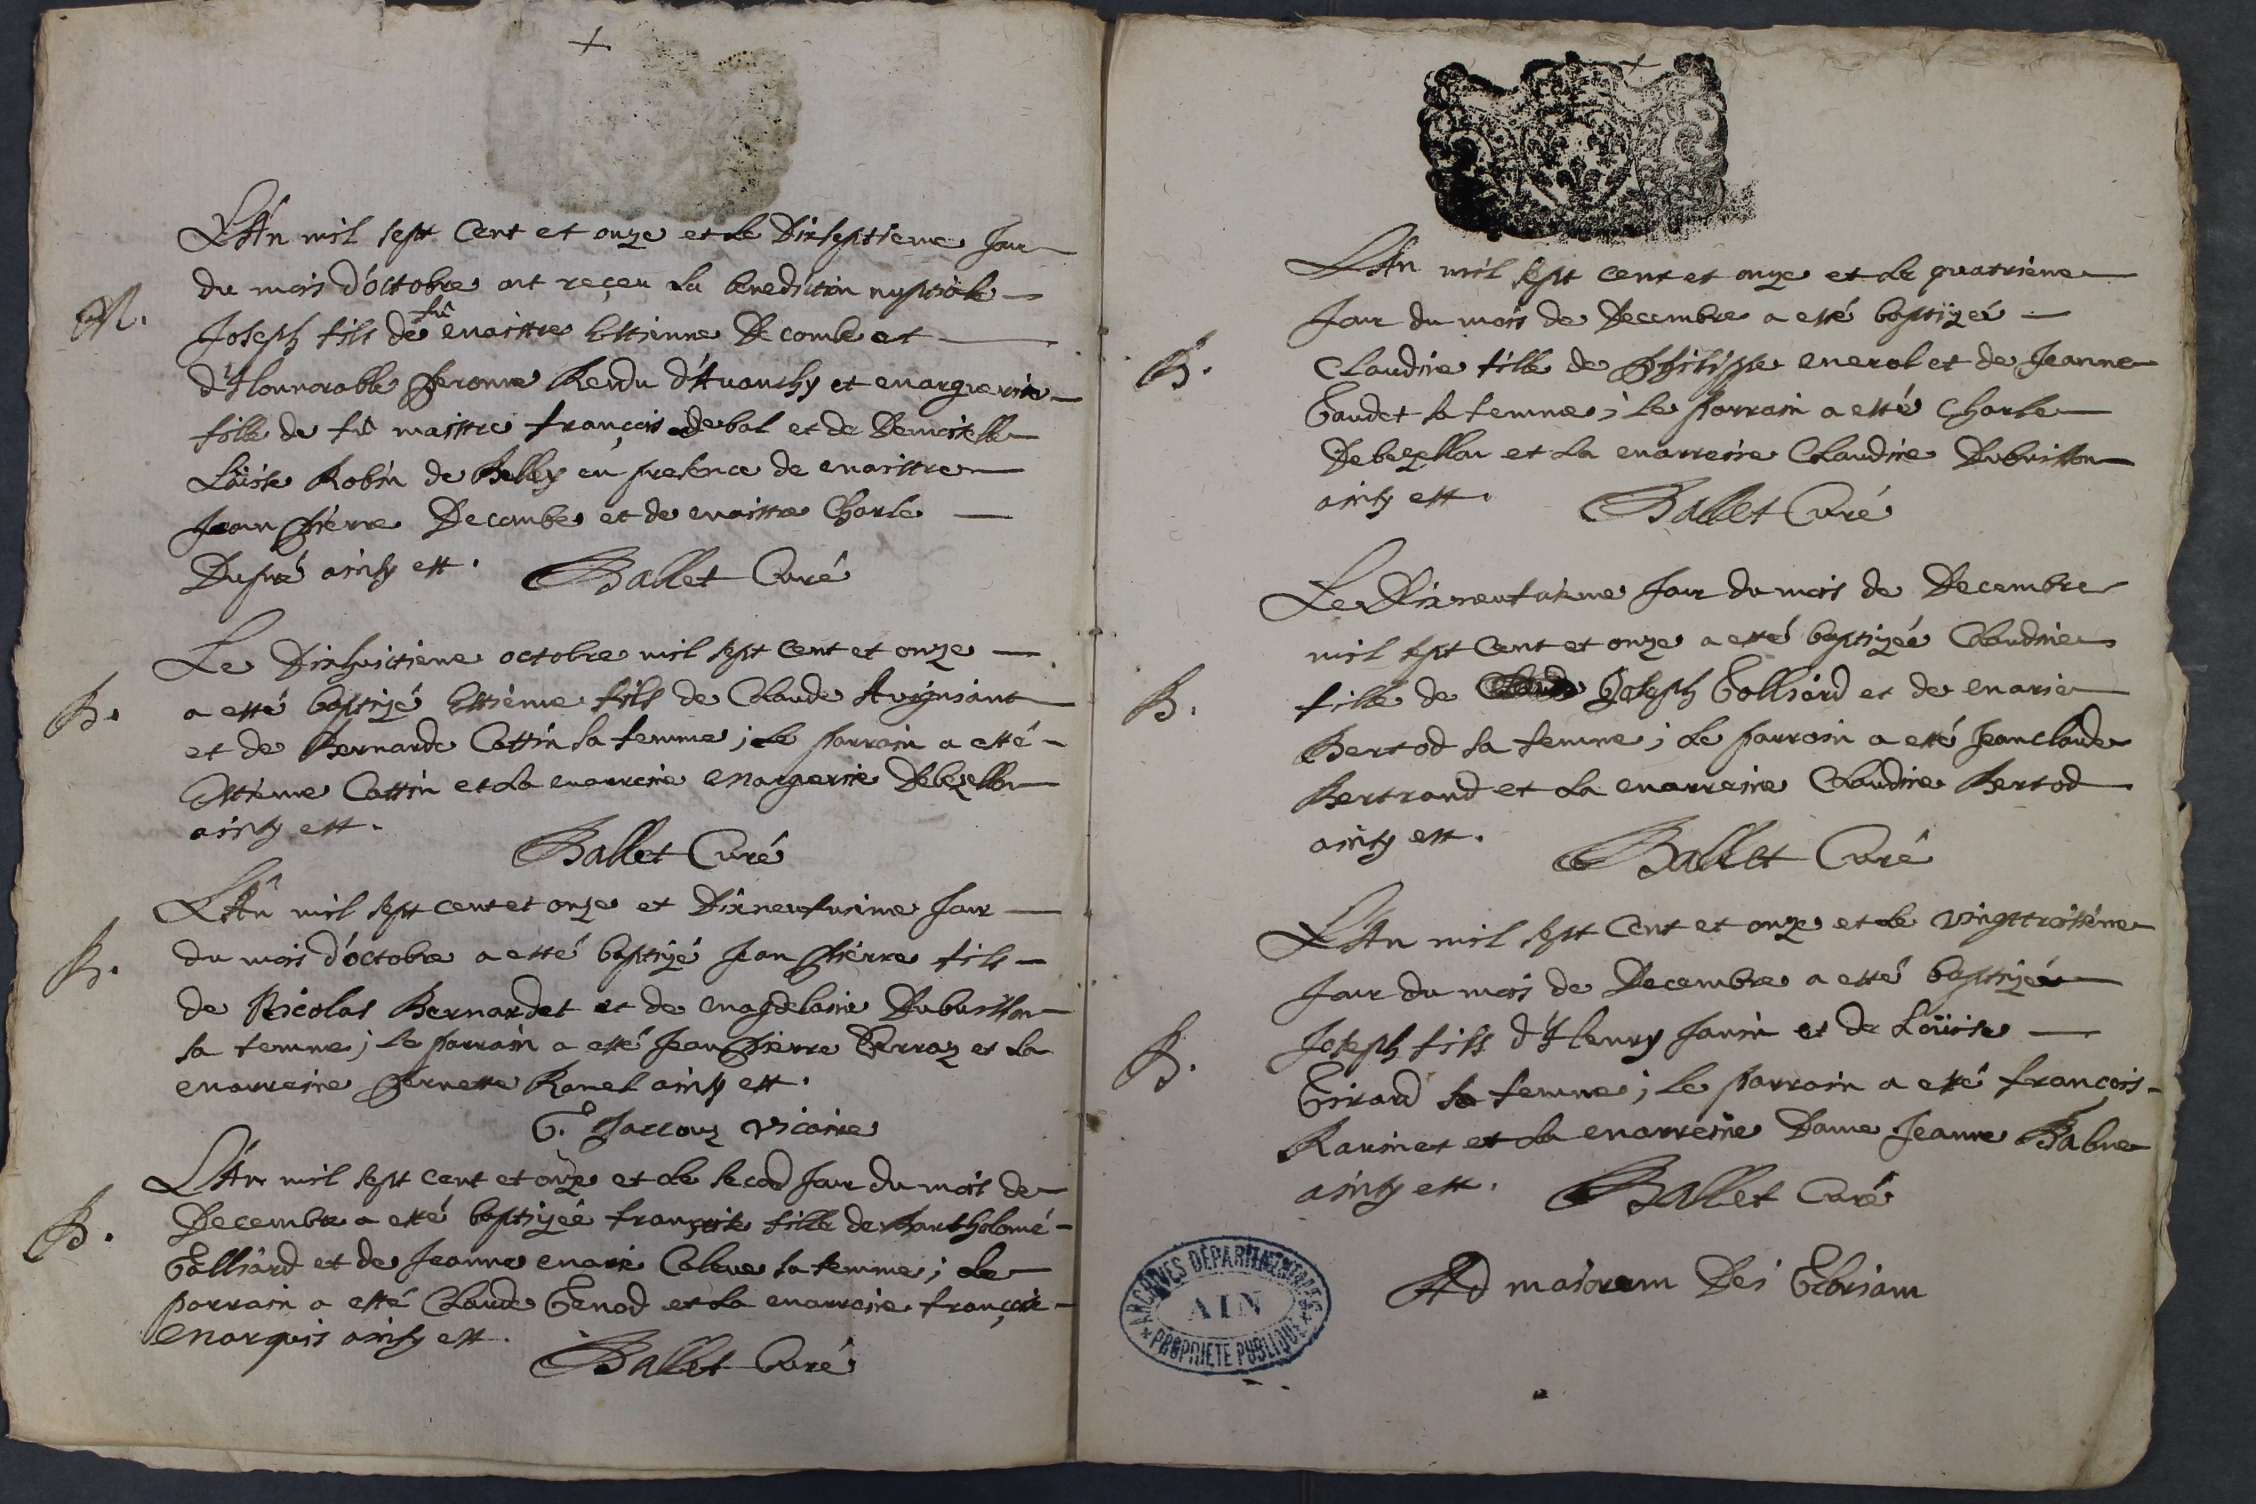 L'An mil sept cent et onze et le Dixseptieme Jour
du mois d'octobre ont reçeu la benediction nuptiale
M.
fû
Joseph fils de maittre Ettienne Decombe et
d'Honnorable Peronne Rendu d'Avanchy et marguerite
fille de fû maittre françois debal et de Demoiselle
Loüise Robin de Belley en presence de maittre
Jean Pierre Decombe et de maittre Charle
Dupré ainsy est. Ballet Curé
Le Dixhuictieme octobre mil sept cent et onze
B.
a etté baptizé Ettienne fils de Claude
et de Bernarde Cottin sa femme; le parrain a etté
Ettienne Cottin et la marreine Margerite Debezellon
ainsy est.
Ballet Curé
L'An mil sept cent et onze et Dixneufuieme Jour
B.
du mois d'octobre a etté baptizé Jean Pierre fils
de Nicolas Bernardet et de magdelaine Dubuisson
sa femme; le parrain a etté Jean Pierre Gerraz et la
marreine Pernette Ramel ainsy est.
G. Jarcouz vicaire
L'An mil sept cent et onze et le second Jour du mois de
B.
Decembre a etté baptizée françoise fille de Bartholomé
Galliard et de Jeanne marie sa femme; le
parrain a etté Claude Genod et la marreine françoise
Marquis ainsy est.
Ballet Curé
L'An mil sept cent et onze et le quatrieme
Jour du mois de Decembre a etté baptizée
B.
Claudine fille de Philippe merol et de Jeanne
Gaudet sa femme; le parrain a etté Charle
Debezellon et la marreine Claudine Dubuisson
ainsy est. Ballet Curé
Le Dixneufuieme Jour du mois de Decembre
mil sept cent et onze a etté baptizée Claudine
B.
fille de Joseph Golliard et de marie
Bertod sa femme; le parrain a etté Jean Claude
Bertrand et la marreine Claudine Bertod
ainsy est.
Ballet Curé
L'An mil sept cent et onze et le vingttroisiéme
Jour du mois de Decembre a etté baptizé
B.
Joseph fils d'Henry Janin et de Loüise
Girard sa femme; le parrain a etté françois
Ravinet et la marreine Dame Jeanne Balme
ainsy est. Ballet Curé
Ad maiorem Dei Gloriam
ARCHIVES DÉPARTEMENTALES
AIN
PROPRIÉTÉ PUBLIQUE